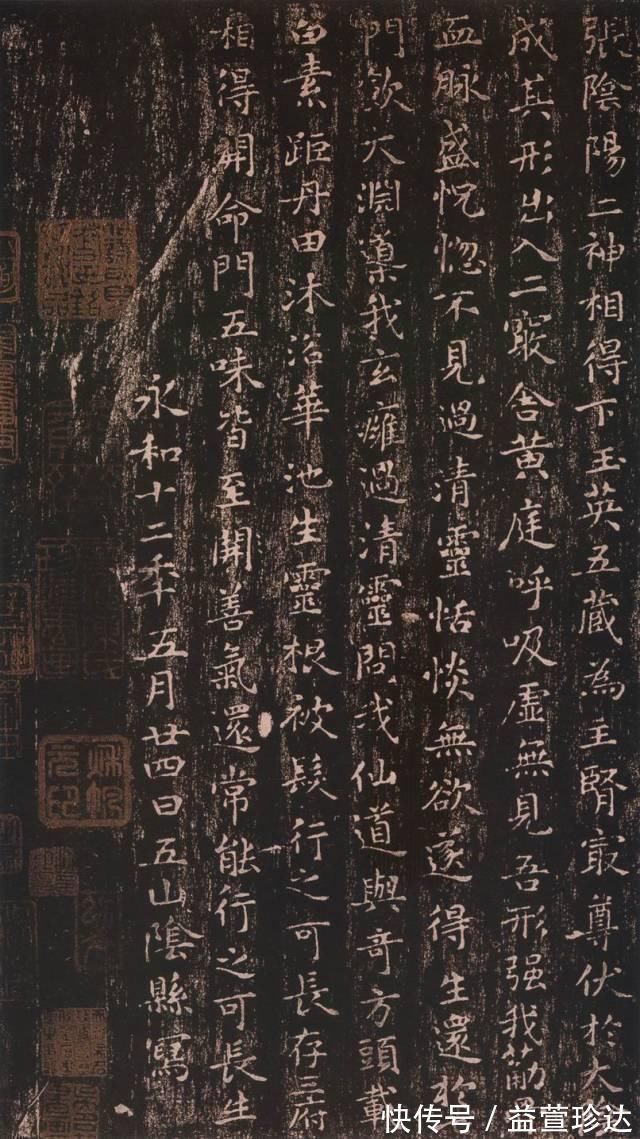 張陰陽二神相得下玉英五藏為主腎冣尊伏於大
成其形出入二竅舍黄庭呼吸虚無見吾形强我筋
血脉盛怳惚不見過清靈恬惔無欲遂得生還於
門飲大淵導我玄癰過清靈問我仙道與奇方頭載
白素距丹田沐浴華池生靈根被髮行之可長存三府
相得開命門五味皆至開善氣還常能行之可長生
永和十二年五月廿四日五山陰縣寫
快传号／益萱珍达